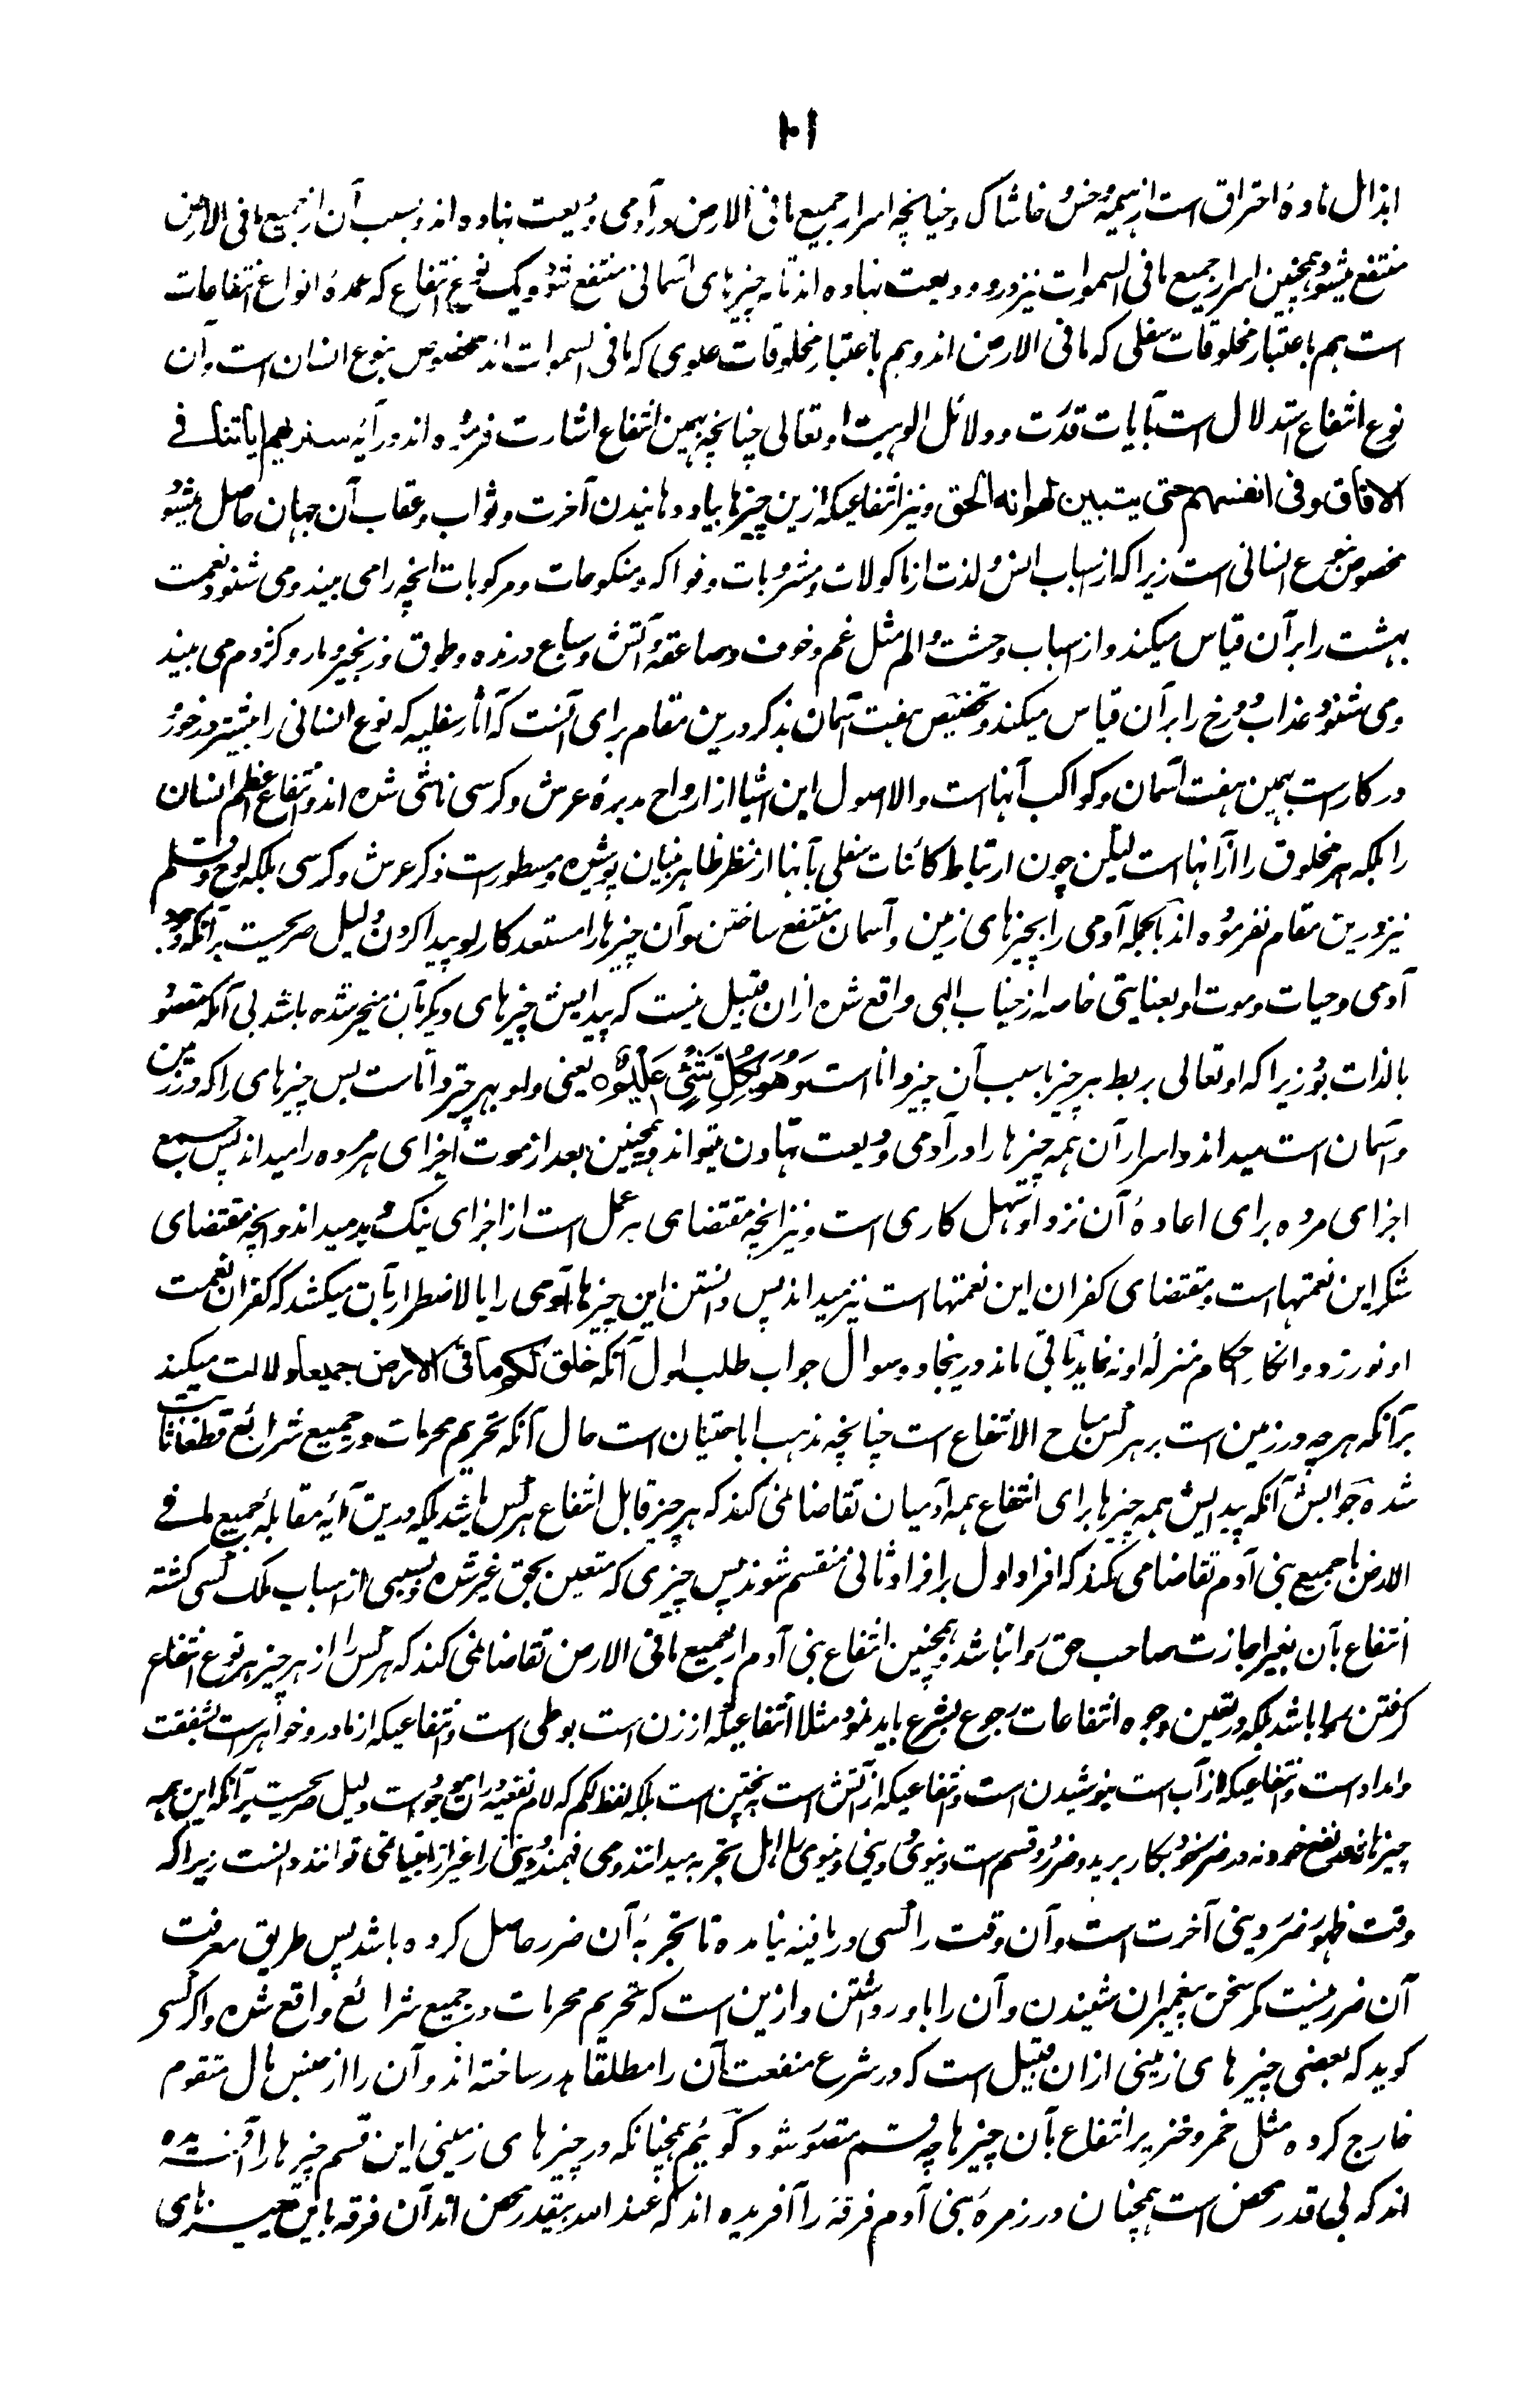 ۱۰۱
ابذال مادهٔ احتراق است از هیمه و خس و خاشاک و چنانچه اسرار جمیع ما فی الارض در آدمی ودیعت نهاده اند و بسبب آن از جمیع ما فی الارض
منتفع میشود همچنین اسرار جمیع ما فی السموات نیز درو ودیعت نهاده اند تا به چیزهای آسمانی منتفع شود و یک نوع انتفاع که عمدهٔ انواع انتفاعات
است هم باعتبار مخلوقات سفلی که ما فی الارض اند و هم باعتبار مخلوقات علوی که ما فی السموات اند مخصوص بنوع انسان است و آن
نوع انتفاع استدلال است بآیات قدرت و دلائل الوهیت او تعالی چنانچه بهمین انتفاع اشارت فرموده اند در آیه سنریهم ایاتنا فے
الافاق و فی انفسهم حتی یتبین لهم انه الحق و نیز انتفاعیکه ازین چیزها بیاد دهانیدن آخرت و ثواب و عقاب آن جهان حاصل میشود
مخصوص بنوع انسانی است زیرا که از اسباب انس و لذت از ماکولات و مشروبات و فواکه و منکوحات و مرکوبات آنچه را می بیند و می شنود نعمت
بهشت را بر آن قیاس میکند و از اسباب وحشت و الم مثل غم و خوف و صاعقه و آتش و سباع درنده و طوق و زنجیر و مار و کژدم می بیند
و می شنود عذاب دوزخ را بر آن قیاس میکند و تخصیص هفت آسمان بذکر درین مقام برای آنست که آثار سفلیه که نوع انسانی را بیشتر در خور
در کار است همین هفت آسمان و کواکب آنها است والا اصول این اشیا از ارواح مدبرهٔ عرش و کرسی ناشی شده اند و انتفاع اعظم انسان
را بلکه هر مخلوق را از آنها است لیکن چون ارتباط کائنات سفلی بآنها از نظر ظاهر بینان پوشیده و مسطور است ذکر عرش و کرسی بلکه لوح و قلم
نیز درین مقام نفرموده اند بالجمله آدمی را بچیزهای زمین و آسمان منتفع ساختن و آن چیزها را مستعد کار او پیدا کردن دلیل صریحست بر آنکه وجود
آدمی و حیات و موت او بعنایتی خاصه از جناب الهی واقع شده ازان قبیل نیست که پیدایش چیزهای دیگر بآن منجر شده باشد بی آنکه مقصود
بالذات بود زیرا که او تعالی بربط هر چیز با سبب آن چیز دانا است وَهُوَ بِكُلِّ شَيْءٍ عَلِيمٌ ۝ یعنی و او بهر چیز دانا ست پس چیزهای را که در زمین
و آسمان است میداند و اسرار آن همه چیزها را در آدمی ودیعت نهادن میتواند و همچنین بعد از موت اجزای هر مرده را میداند پس جمع
اجزای مرده برای اعادهٔ آن نزد او سهل کاری است و نیز آنچه مقتضای هر عمل است از اجزای نیک و بد میداند و آنچه مقتضای
شکر این نعمتها است و مقتضای کفران این نعمتها است نیز میداند پس دانستن این چیزها آدمی را بالاضطرار بآن میکشد که کفران نعمت
او نورزد و انکار احکام منزلهٔ او ننماید باقی ماند درینجا دو سوال جواب طلب اول آنکه خلق لكم ما فی الارض جمیعا دلالت میکند
بر آنکه هر چه در زمین است بر هر کس مباح الانتفاع است چنانچه مذهب اباحتیان است حال آنکه تحریم محرمات در جمیع شرائع قطعا ثابت
شده جوابش آنکه پیدایش همه چیزها برای انتفاع همه آدمیان تقاضا نمی کند که هر چیز قابل انتفاع هر کس باشد بلکه درین آیه مقابله جمیع ما فے
الارض با جمیع بنی آدم تقاضا می کند که افراد اول بر افراد ثانی منقسم شوند پس چیزی که متعین بحق غیر شده و بسببی از اسباب ملک کسی گشته
انتفاع بآن بغیر اجازت صاحب حق روا نباشد و همچنین انتفاع بنی آدم از جمیع ما فی الارض تقاضا نمی کند که هر کس را از هر چیز هر نوع انتفاع
گرفتن روا باشد بلکه در تعین وجوه انتفاعات رجوع بشرع باید نمود مثلا انتفاعیکه از زن است بوطی است و انتفاعیکه از مادر و خواهر است بشفقت
و امداد است و انتفاعیکه از آب است بنوشیدن است و انتفاعیکه از آتش است به پختن است بلکه لفظ لکم که لام نفعیه درآن موجود است دلیل صریحست بر آنکه این همه
چیزها برای نفع خود نه در ضرر خود بکار برید و ضرر دو قسم است دنیوی و دینی دنیوی را اهل تجربه میدانند و می فهمند و دینی را غیر از انبیا نمی توانند دانست زیرا که
وقت ظهور ضرر دینی آخرت است و آن وقت را کسی در نیافته نیامده تا تجربهٔ آن ضرر حاصل کرده باشد پس طریق معرفت
آن ضرر نیست مگر سخن پیغمبران شنیدن و آن را باور داشتن و ازین است که تحریم محرمات در جمیع شرائع واقع شده و اگر کسی
گوید که بعضی چیزهای زمینی ازان قبیل است که در شرع منفعت آن را مطلقا هدر ساخته اند و آن را از جنس مال متقوم
خارج کرده مثل خمر و خنزیر انتفاع بآن چیزها چه قسم متصور شود گوئیم همچنانکه در چیزهای زمینی این قسم چیزها را آفریده
اند که بی قدر محض است همچنان در زمرهٔ بنی آدم فرقه را آفریده اند که عند الله بیقدر محض اند آن فرقه باین چیزهای